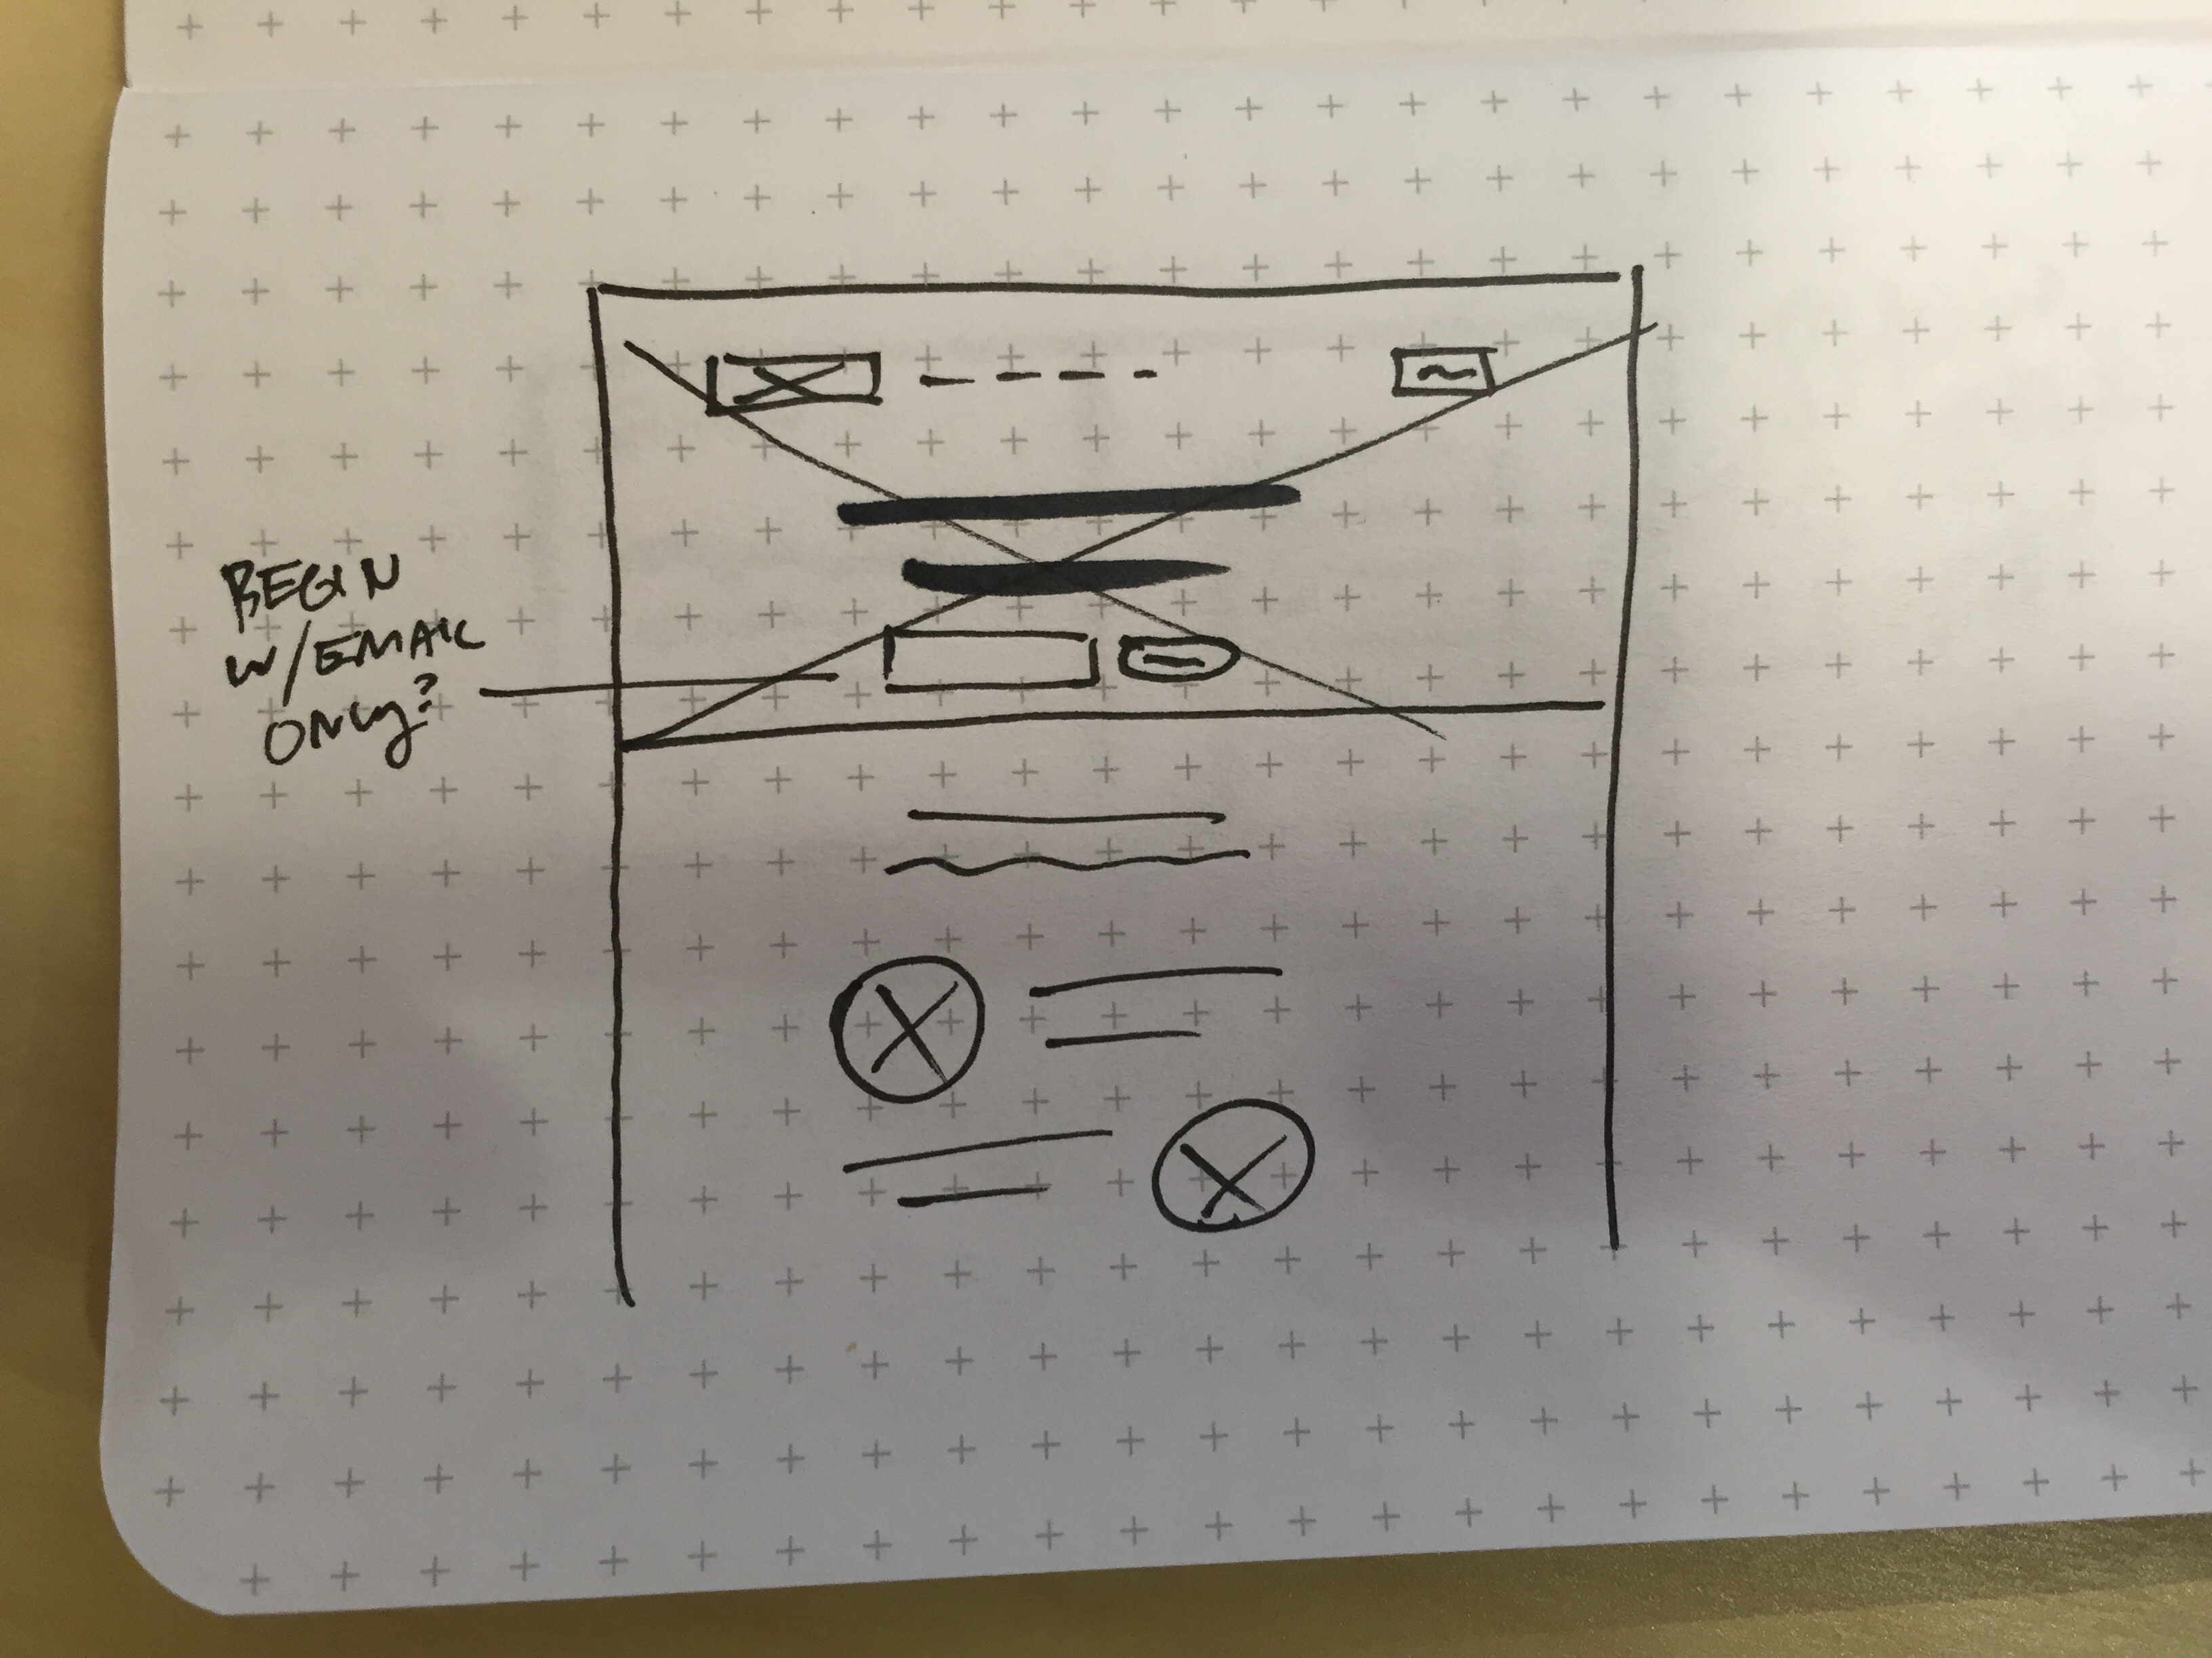 BEGIN
W/EMAIL
ONLY?